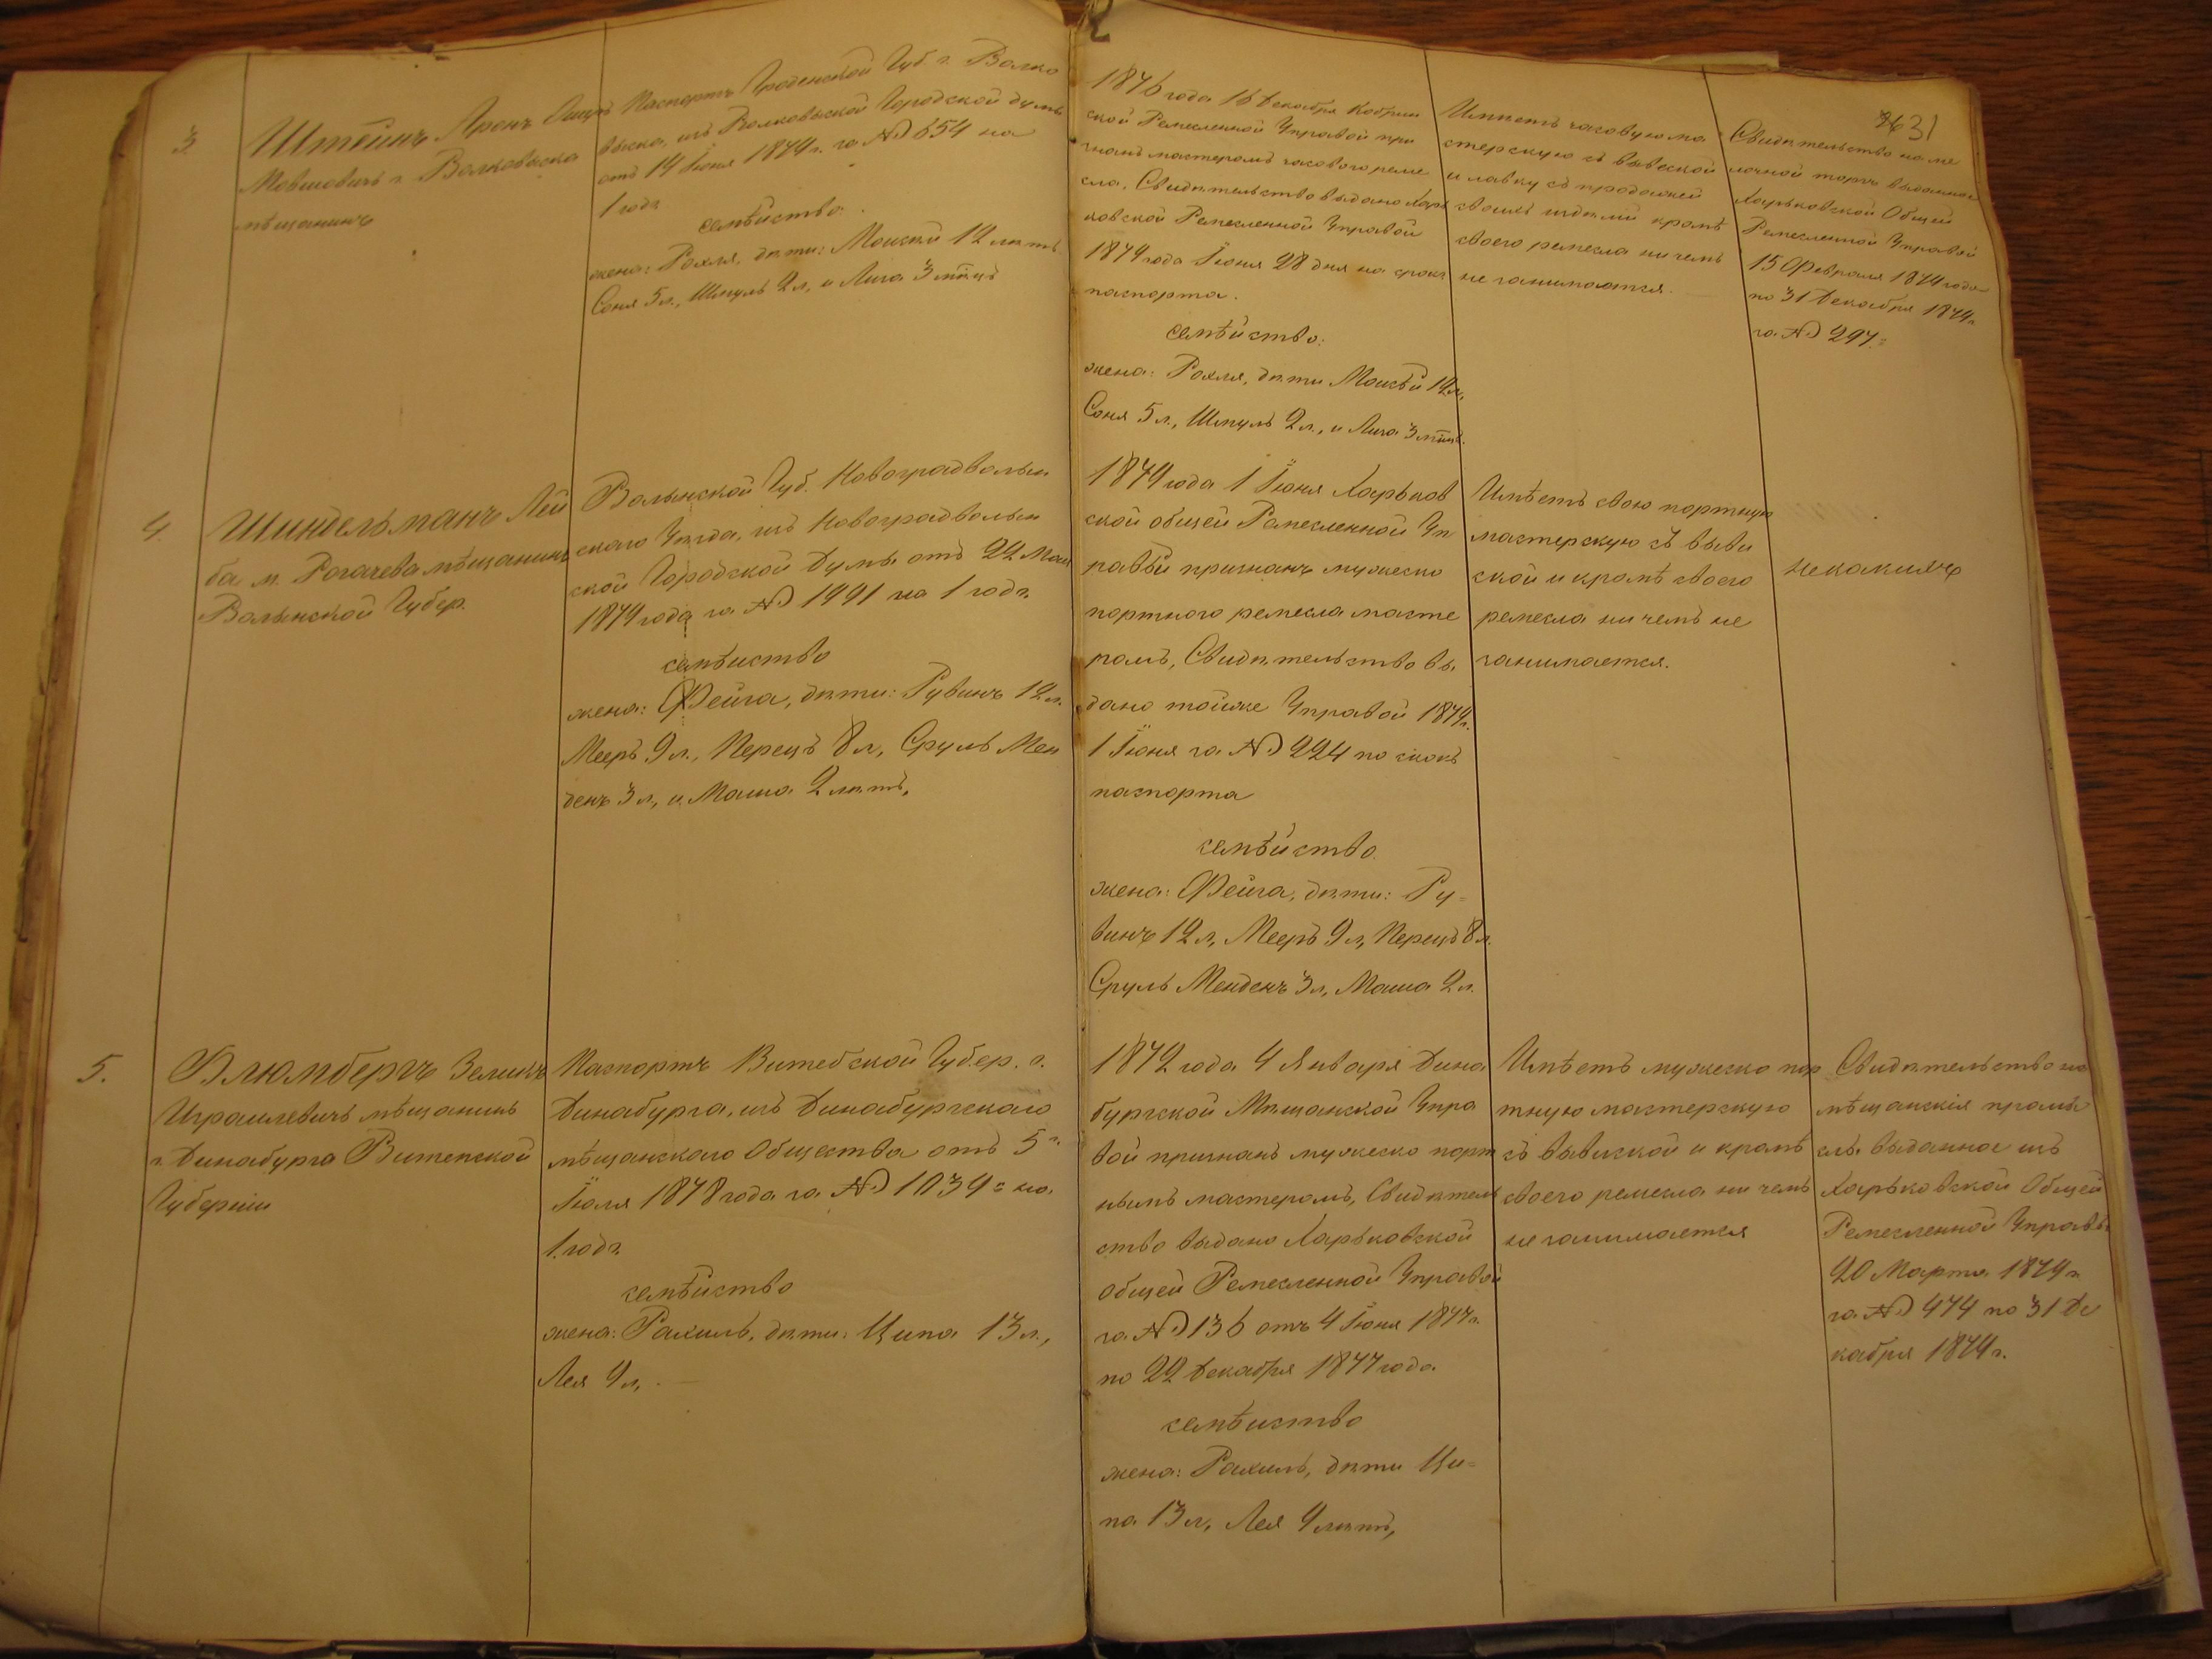 3.
Штейнъ Аронъ
Мовшовичъ г. Волковыска
мѣщанинъ
Паспортъ Гроденской Губ. г. Волко
выска, изъ Волковыской Городской думы
отъ 14 Іюня 1879 г. за № 654 на
1 годъ
семѣйство:
жена: Рохля, дѣти: Моисей 12 лѣтъ
Соня 5 л., Шмуль 2 л., и Лиза 3 мѣсяцъ
1876 года 16 Декабря Кобрин
ской Ремесленной Управой при
знанъ мастеромъ часового реме
сла, Свидѣтельство выдано Харь
ковской Ремесленной Управой
1879 года Іюня 28 дня на срокъ
паспорта.
семѣйство:
жена: Рохля, дѣти Моисѣй 12 л,
Соня 5 л., Шмуль 2 л., и Лиза 3 мѣсяц.
Имѣетъ часовую ма
стерскую съ вывеской
и лавку съ продажей
своихъ издѣлій кромѣ
своего ремесла ни чемъ
не занимается.
31
Свидѣтельство на ме
лочной торгъ выданное
Харьковской Общей
Ремесленной Управой
15 Февраля 1879 года
по 31 Декабря 1879 г.
за № 297.=
4.
Шиндельманъ Лей
ба м. Рогачева мѣщанинъ
Волынской Губер.
Волынской Губ. Новоградволын
скаго Уѣзда, изъ Новоградволын
ской Городской Думы отъ 22 Мая
1879 года за № 1991 на 1 годъ
семѣйство
жена: Фейга, дѣти: Рувинъ 12 л.
Мееръ 9 л., Перецъ 8 л, Сруль Мен
денъ 3 л, и Маша 2 лѣтъ,
1879 года 1 Іюня Харьков
ской общей Ремесленной Уп
равый признанъ мужеско
портного ремесла масте
ромъ, Свидѣтельство вы
дано тойже Управой 1879 г.
1 Іюня за № 224 по срокъ
паспорта
семѣйство.
жена: Фейга, дѣти: Ру=
винъ 12 л, Мееръ 9 л, Перецъ 8 л.
Сруль Менденъ 3 л, Маша 2 л.
Имѣетъ свою портную
мастерскую съ выви
ской и кромѣ своего
ремесла ни чемъ не
занимается.
некакихъ
5.
Блюмбергъ Зеликъ
Израилевичъ мѣщанинъ
г. Динабурга Витепской
Губерніи
Паспортъ Витебской Губер. г.
Динабурга, изъ Динабургскаго
мѣщанскаго Общества отъ 5 г.
Іюля 1878 года за № 1039= на
1 годъ
семѣйство
жена: Рахиль, дѣти: Ципа 13 л.,
Лея 9 л,.—
1872 года 4 Января Дина
бургской Мѣщанской Упра
вой признанъ мужеско порт
нымъ мастеромъ, Свидѣтель
ство выдано Харьковской
общей Ремесленной Управой
за № 136 отъ 4 Іюня 1877 г.
по 22 Декабря 1877 года.
семѣйство
жена: Рахиль, дѣти Ци=
па 13 л, Лея 9 лѣтъ,
Имѣетъ мужеско пор
тную мастерскую
съ вывиской и кромѣ
своего ремесла ни чемъ
не занимается
Свидѣтельство на
мѣщанскія промы
слы выданное изъ
Харьковской Общей
Ремесленной Управы
20 Марта 1879 г.
за № 474 по 31 Де
кабря 1879 г.